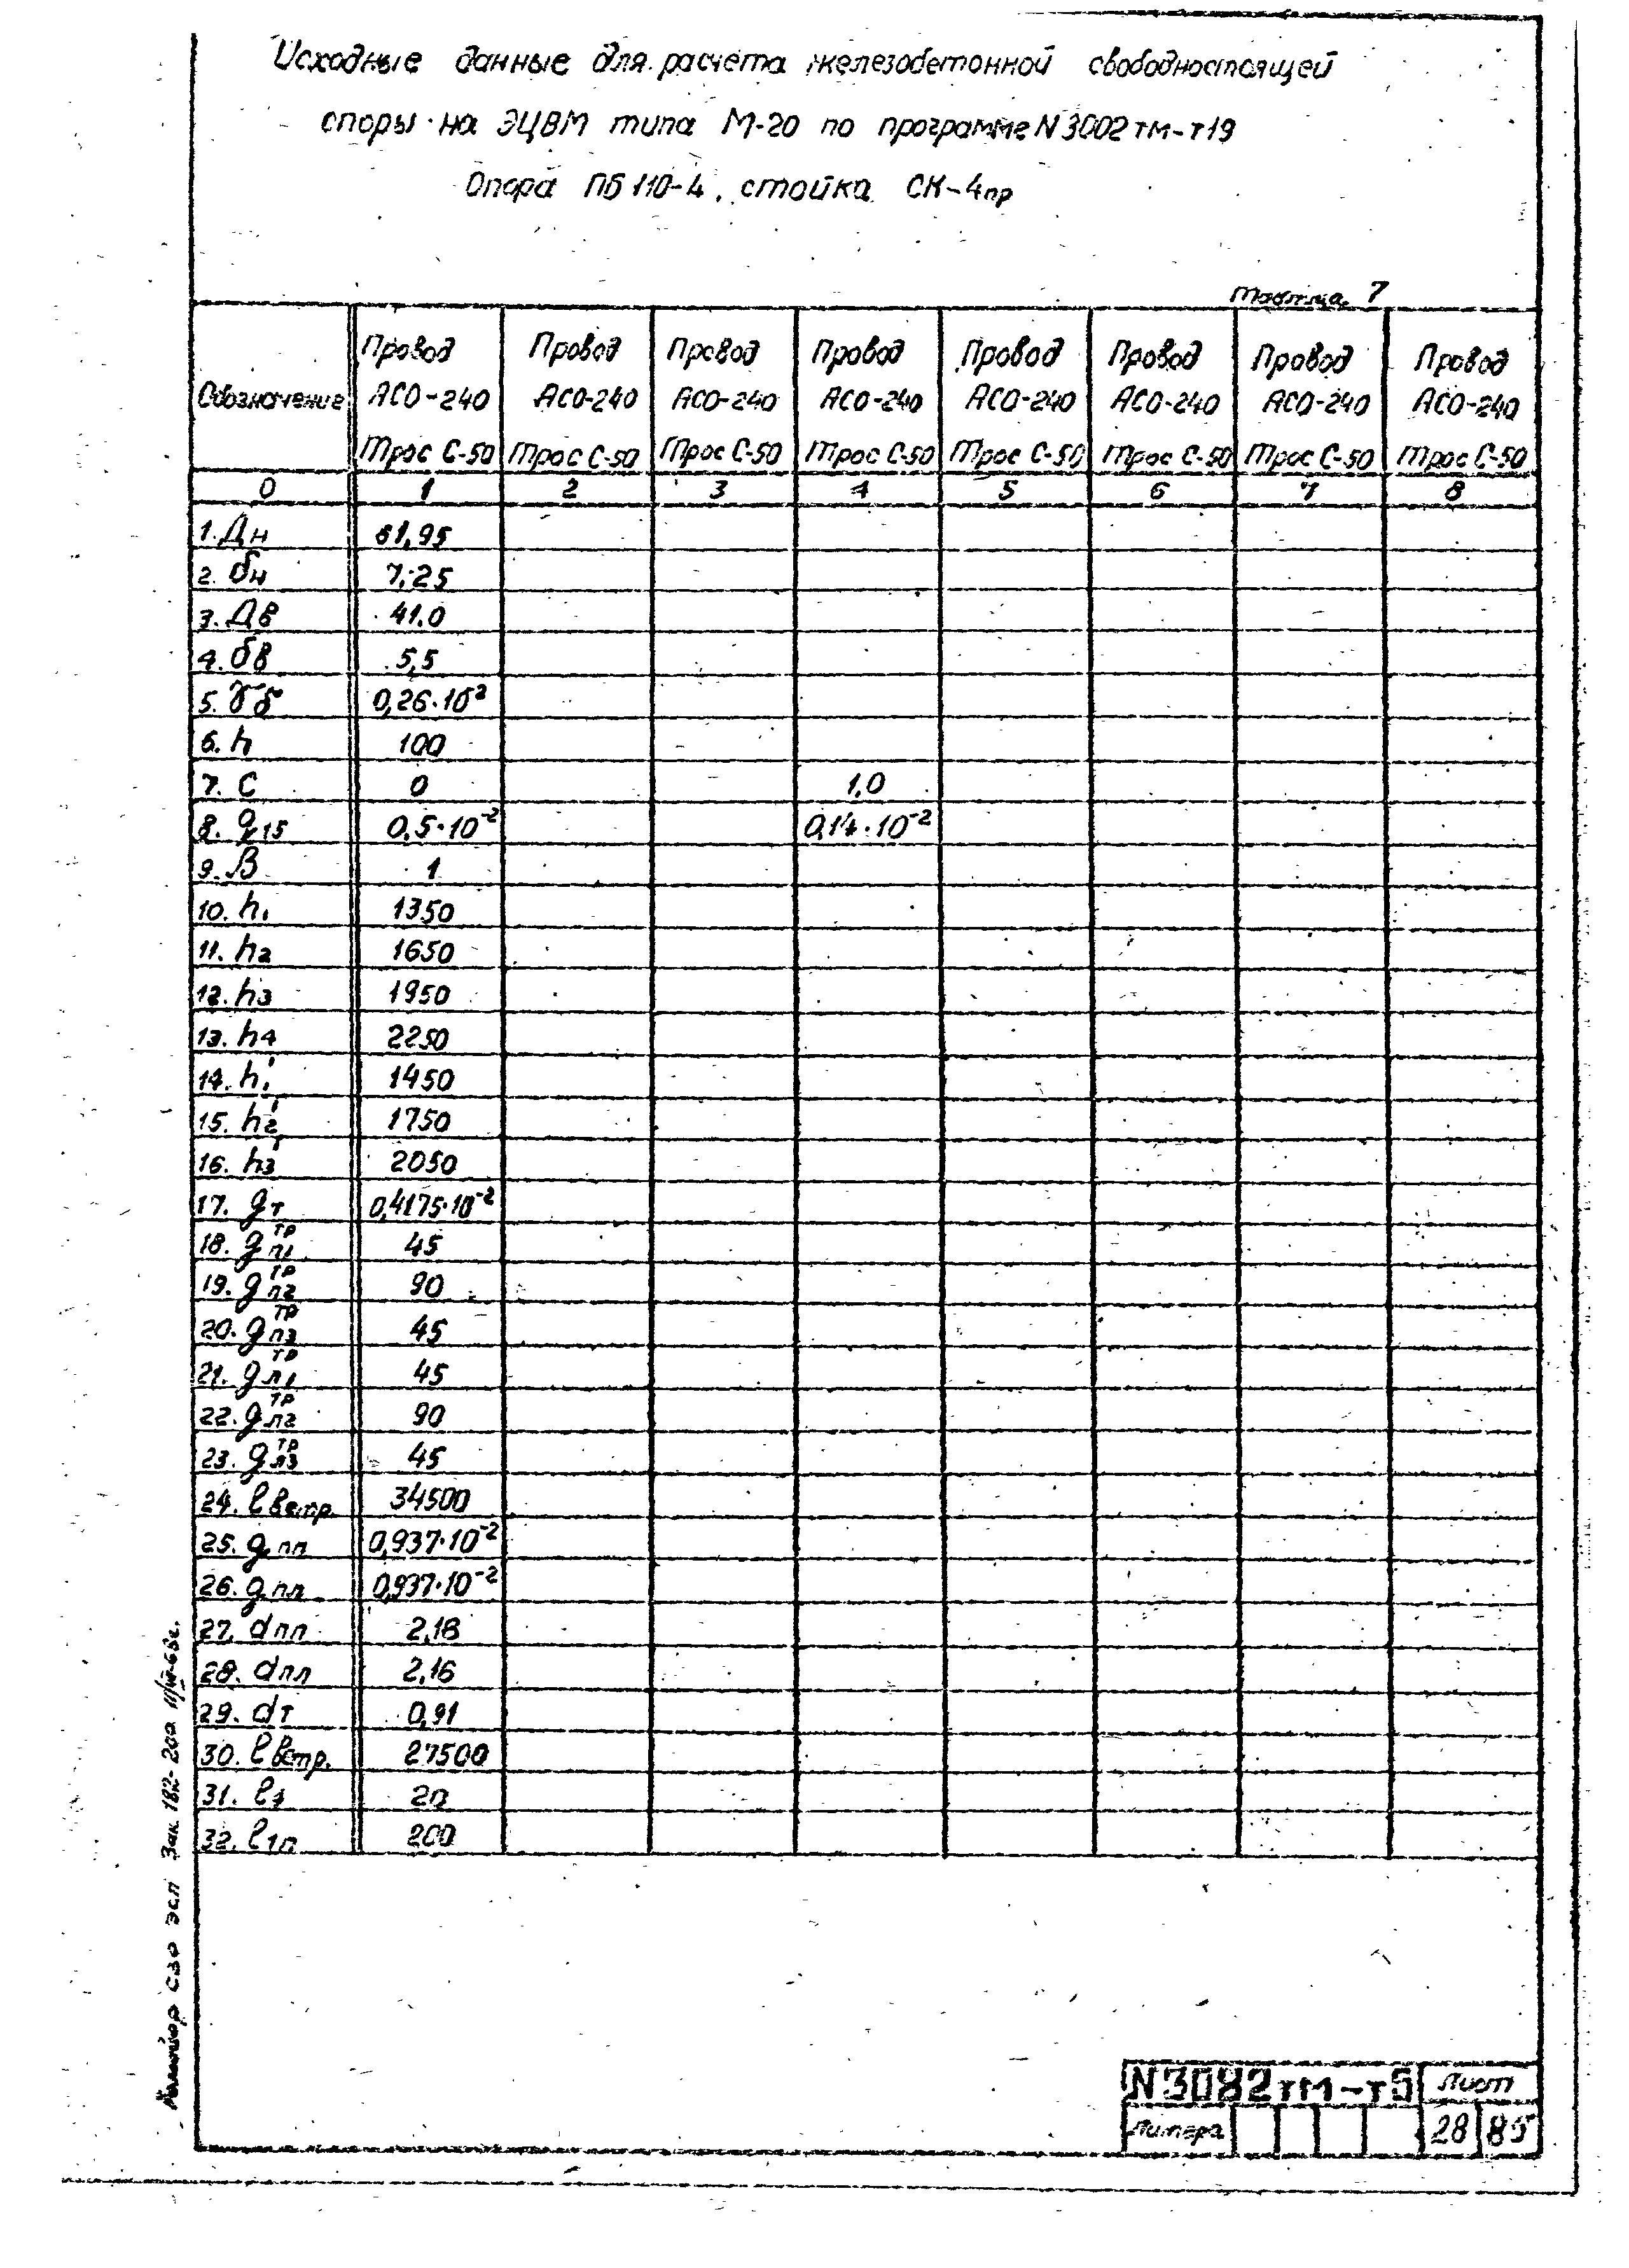 Исходные данные для расчета железобетонной свободностоящей
опоры на ЭЦВМ типа М-20 по программе N 3002тм-т19
Опора ПБ 110-4, стойка СК-4пр
Таблица 7
Обозначение | Провод АСО-240 Трос С-50 | Провод АСО-240 Трос С-50 | Провод АСО-240 Трос С-50 | Провод АСО-240 Трос С-50 | Провод АСО-240 Трос С-50 | Провод АСО-240 Трос С-50 | Провод АСО-240 Трос С-50 | Провод АСО-240 Трос С-50
0 1 2 3 4 5 6 7 8
1. Дн 61,95
2. δн 7,25
3. Дв 41.0
4. δв 5,5
5. γδ 0,26·10²
6. h 100
7. С 0 1,0
8. q15 0,5·10⁻² 0,14·10⁻²
9. В 1
10. h₁ 1350
11. h₂ 1650
12. h₃ 1950
13. h₄ 2250
14. h₁' 1450
15. h₂' 1750
16. h₃' 2050
17. gт 0,4175·10⁻²
18. gп1 тр 45
19. gп2 тр 90
20. gп3 тр 45
21. gл1 тр 45
22. gл2 тр 90
23. gл3 тр 45
24. ℓветр. 34500
25. gпп 0,937·10⁻²
26. gпл 0,937·10⁻²
27. dпп 2,16
28. dпл 2,16
29. dт 0,91
30. ℓветр. 27500
31. ℓ1 20
32. ℓ1п 200
N3082тм-т5 Лист
Литера 28 85
СЗО ЭСП Зак. 182-200